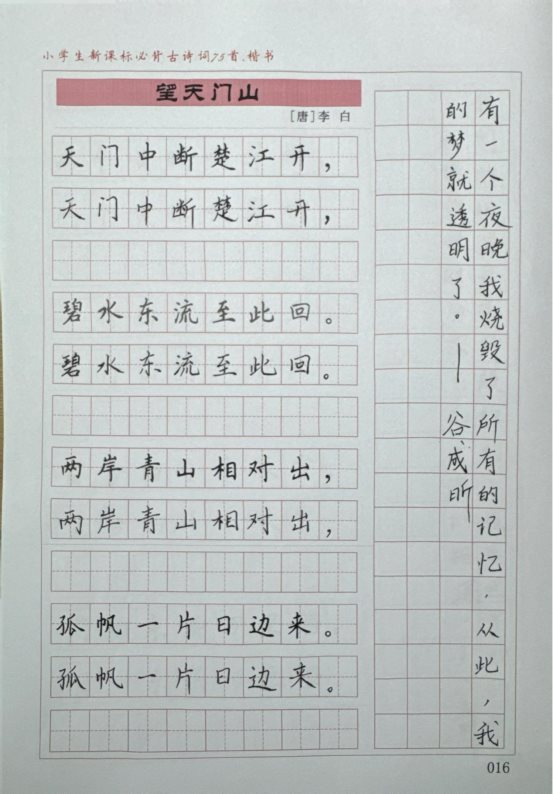 小学生新课标必背古诗词75首.楷书
望天门山
[唐]李 白
天门中断楚江开，
天门中断楚江开，
碧水东流至此回。
碧水东流至此回。
两岸青山相对出，
两岸青山相对出，
孤帆一片日边来。
孤帆一片日边来。
有一个夜晚我烧毁了所有的记忆.从此，我
的梦就透明了。—谷成昕
016